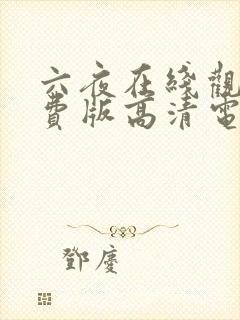 六夜在綫觀
費版高清電
鄧慶